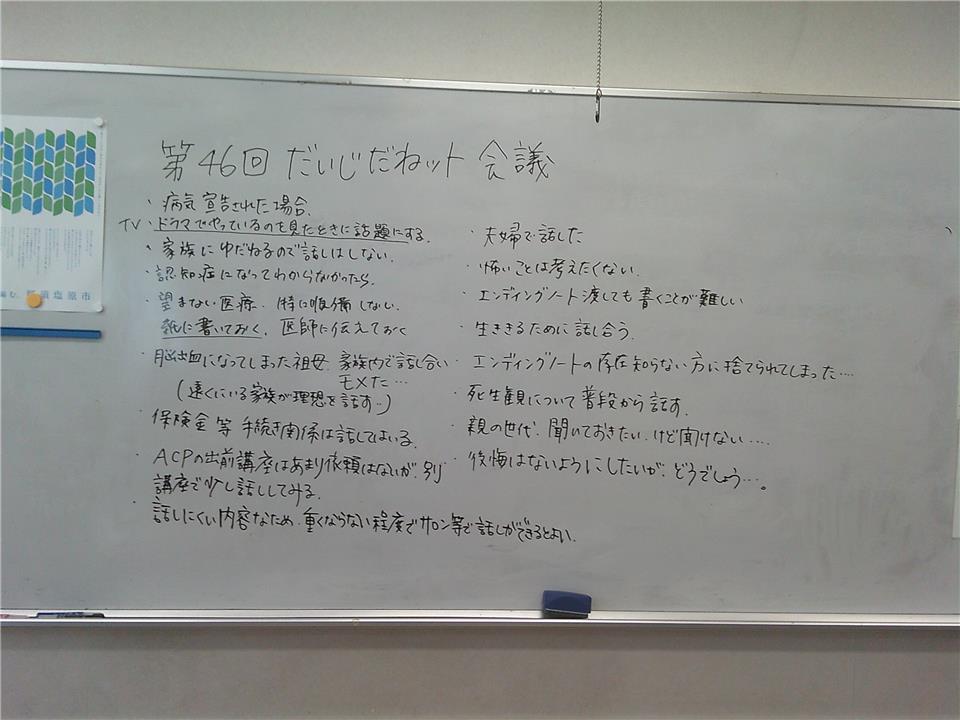 第46回 だいじだねット 会議
・病気宣告された場合.
TV・ドラマでやっているのを見たときに話題にする.
・家族にゆだねるので話しはしない.
・認知症になってわからなかったら.
・望まない医療. 特に準備しない.
紙に書いておく. 医師に伝えておく
・脳出血になってしまった祖母. 家族内で話し合い
モメた…
(遠くにいる家族が理想を話す…)
・保険金等手続き関係は話してはいる.
・ACPの出前講座はあまり依頼はないが、別
講座で少し話ししてみる.
・話しにくい内容なため. 重くならない程度でサロン等で話しができるとよい.
・夫婦で話した
・怖いことは考えたくない.
・エンディングノート渡しても書くことが難しい
・生ききるために話し合う.
・エンディングノートの存在知らない方に捨てられてしまった….
・死生観について普段から話す.
・親の世代. 聞いておきたい. けど聞けない….
・後悔はないようにしたいが、どうでしょう…。
須塩原市